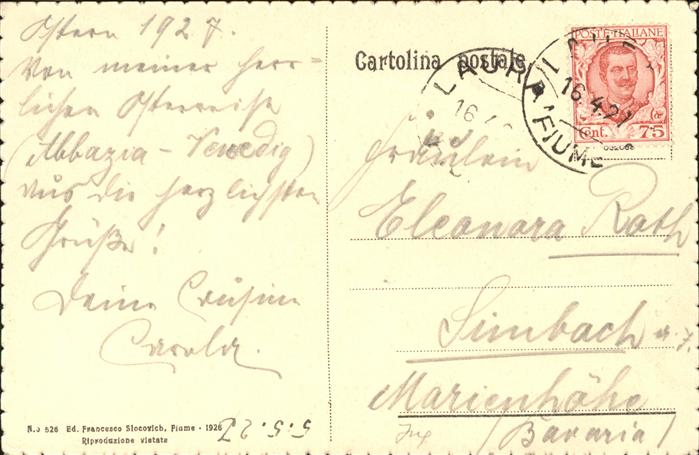 Ostern 1927.
Von meiner herr-
lichen Osterreise
(Abbazia - Venedig)
aus die herzlichsten
Grüße!
Deine Cousine
Carola.
N.o 526 Ed. Francesco Slocovich, Fiume - 1926
Riproduzione vietata
5.5.27
Cartolina postale
POSTE ITALIANE
Cent. 75
LAURANA
16.4.27
FIUME
LAURANA
16.4
Fräulein
Eleonora Roth
Simbach a. J.
Marienhöhe
(Bavaria)